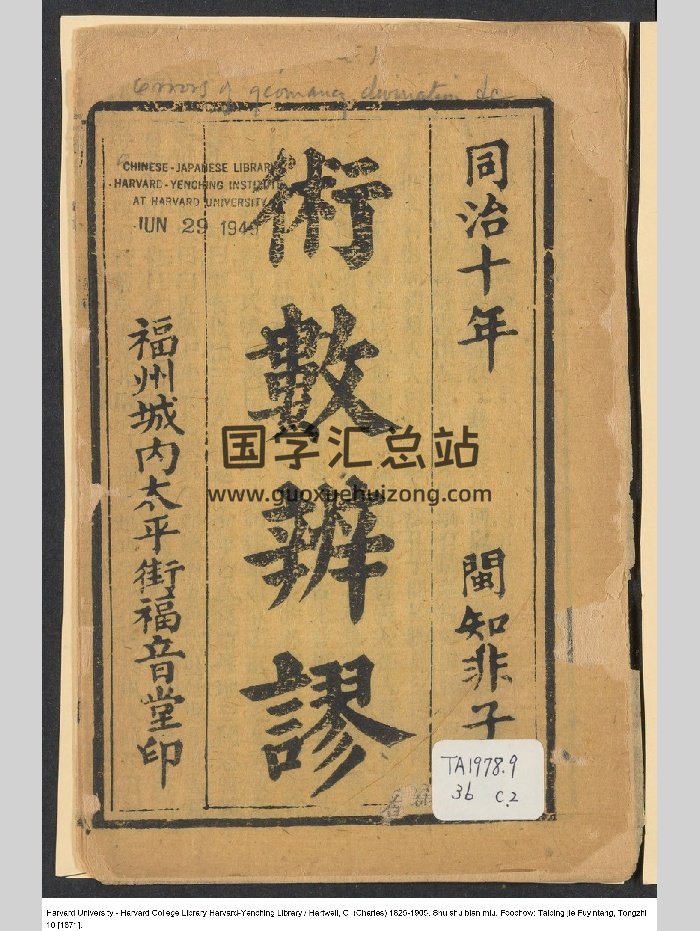 Errors of geomancy divination &c
CHINESE-JAPANESE LIBRARY
HARVARD-YENCHING INSTITUTE
AT HARVARD UNIVERSITY
JUN 29 194
同治十年 閩知非子
術數辨謬
福州城内太平街福音堂印
国学汇总站
www.guoxuehuizong.com
TA1978.9
36 C.2
Harvard University - Harvard College Library Harvard-Yenching Library / Hartwell, C. (Charles) 1825-1905. Shu shu bian miu. Foochow: Taiping jie Fuyintang, Tongzhi
10 [1871].